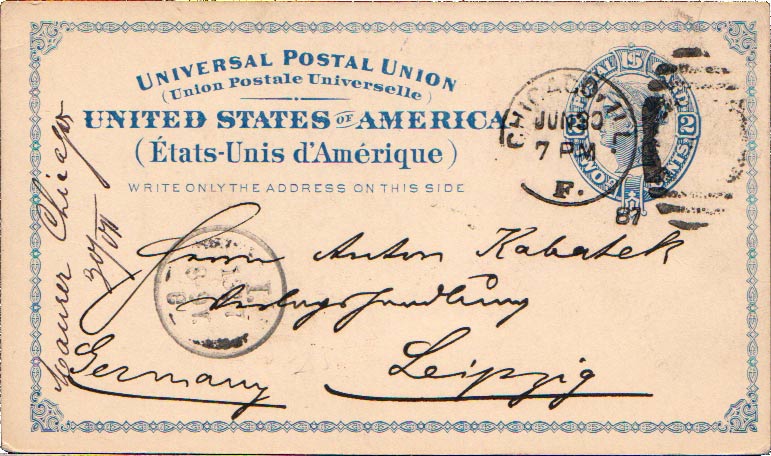 UNIVERSAL POSTAL UNION
(Union Postale Universelle)
UNITED STATES OF AMERICA
(États-Unis d'Amérique)
WRITE ONLY THE ADDRESS ON THIS SIDE
CHICAGO, ILL.
JUN 30
7 PM
F.
87
Herrn Anton Kabatek
Verlagshandlung
Leipzig
Germany
Chicago